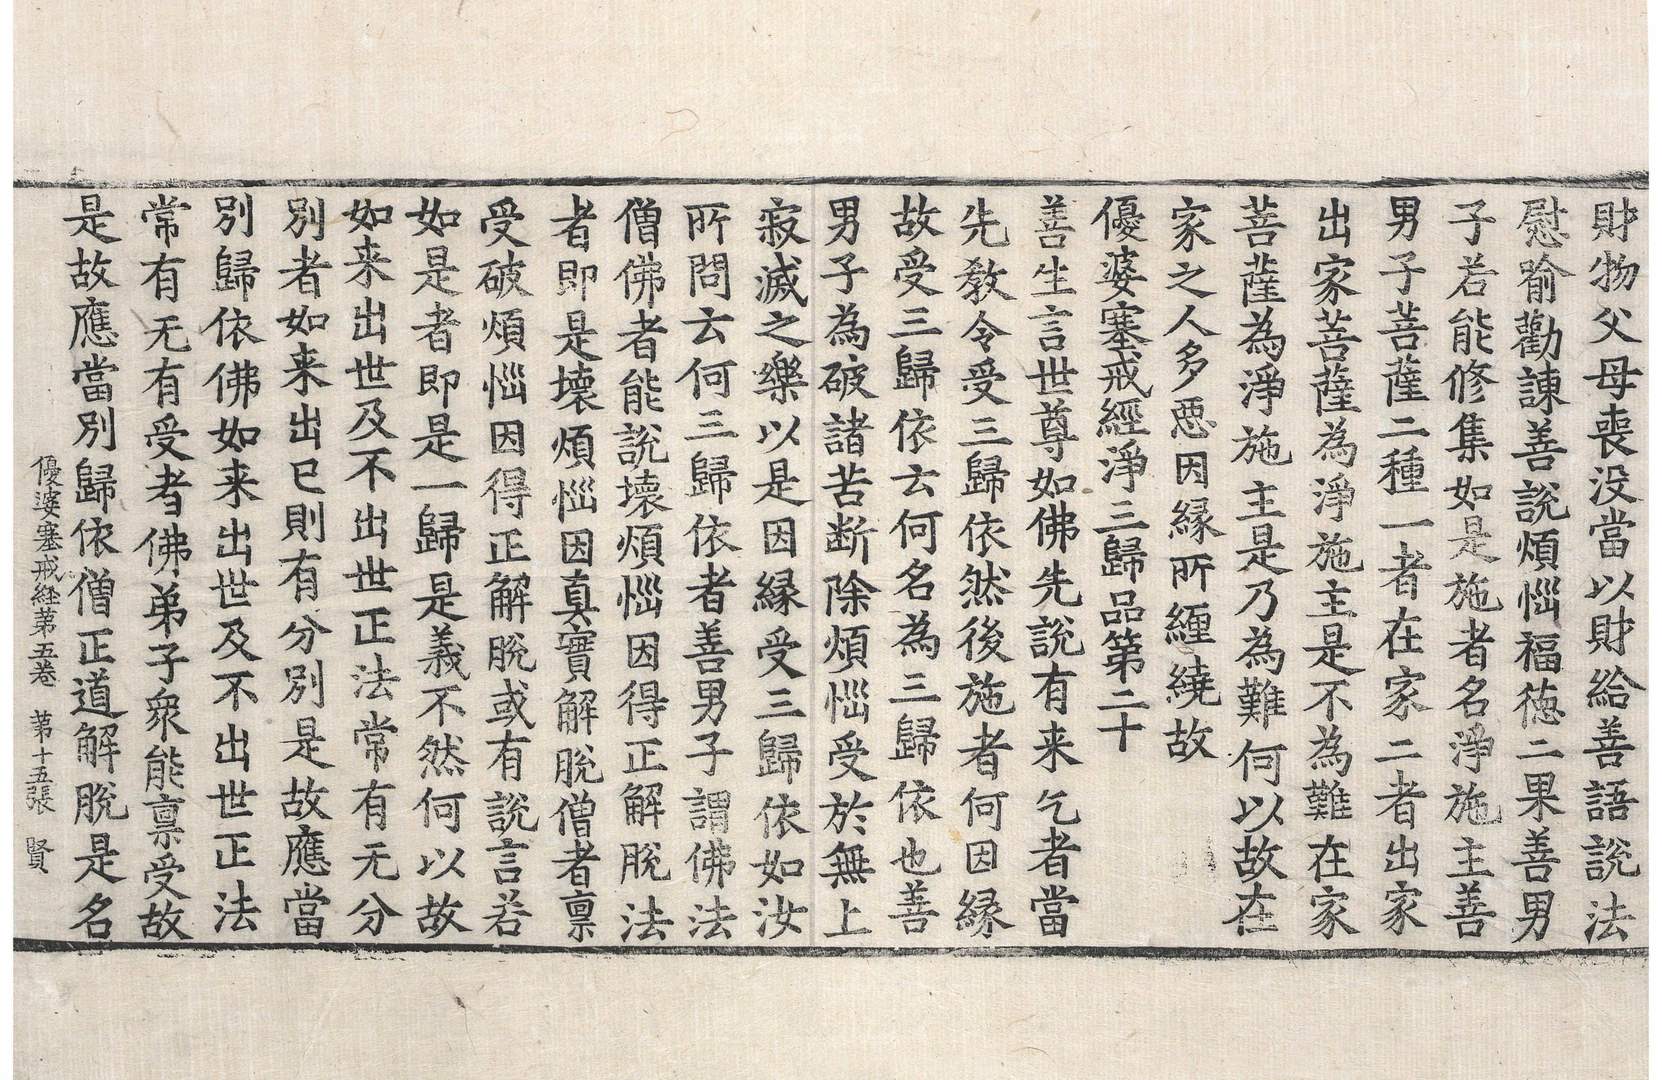 財物父母喪没當以財給善語説法
慰喻勸諫善説煩惱福徳二果善男
子若能修集如是施者名淨施主善
男子菩薩二種一者在家二者出家
出家菩薩為淨施主是不為難在家
菩薩為淨施主是乃為難何以故在
家之人多惡因縁所纏繞故
優婆塞戒經淨三歸品第二十
善生言世尊如佛先説有来乞者當
先教令受三歸依然後施者何因縁
故受三歸依云何名為三歸依也善
男子為破諸苦断除煩惱受於無上
寂滅之樂以是因縁受三歸依如汝
所問云何三歸依者善男子謂佛法
僧佛者能説壞煩惱因得正解脱法
者即是壞煩惱因真實解脱僧者禀
受破煩惱因得正解脱或有説言若
如是者即是一歸是義不然何以故
如来出世及不出世正法常有无分
別者如来出已則有分別是故應當
別歸依佛如来出世及不出世正法
常有无有受者佛弟子衆能禀受故
是故應當別歸依僧正道解脱是名
優婆塞戒経第五巻　第十五張　賢